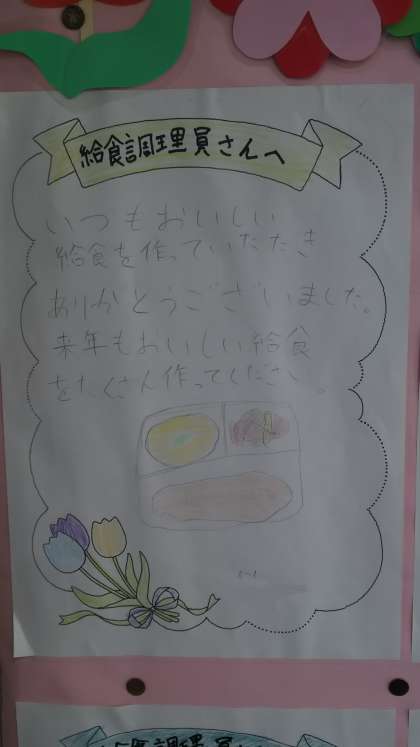 給食調理員さんへ
いつもおいしい
給食を作っていただき
ありがとうございました。
来年もおいしい給食
をたくさん作ってください。